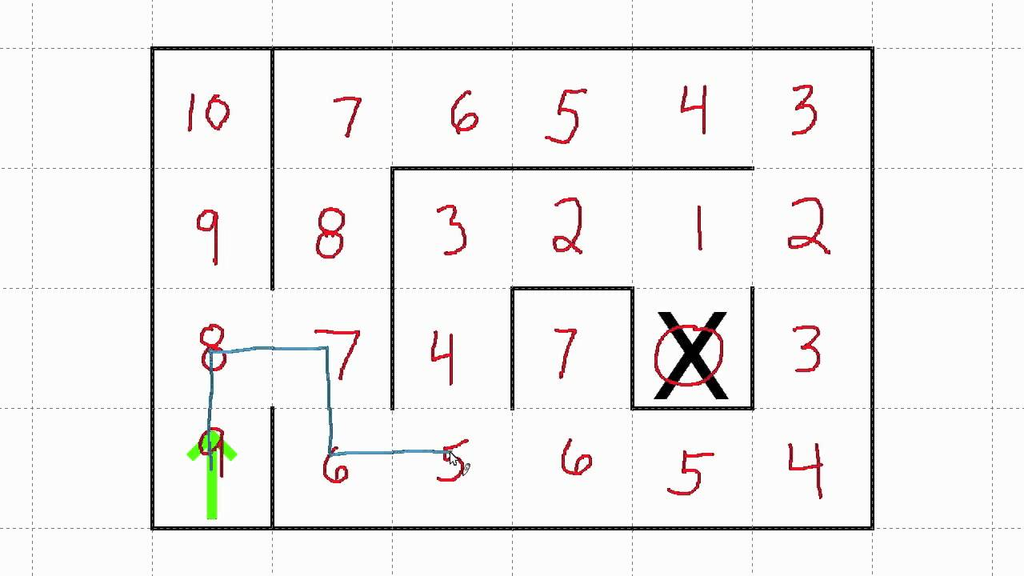 10 7 6 5 4 3
9 8 3 2 1 2
8 7 4 7 X 3
9 6 5 6 5 4